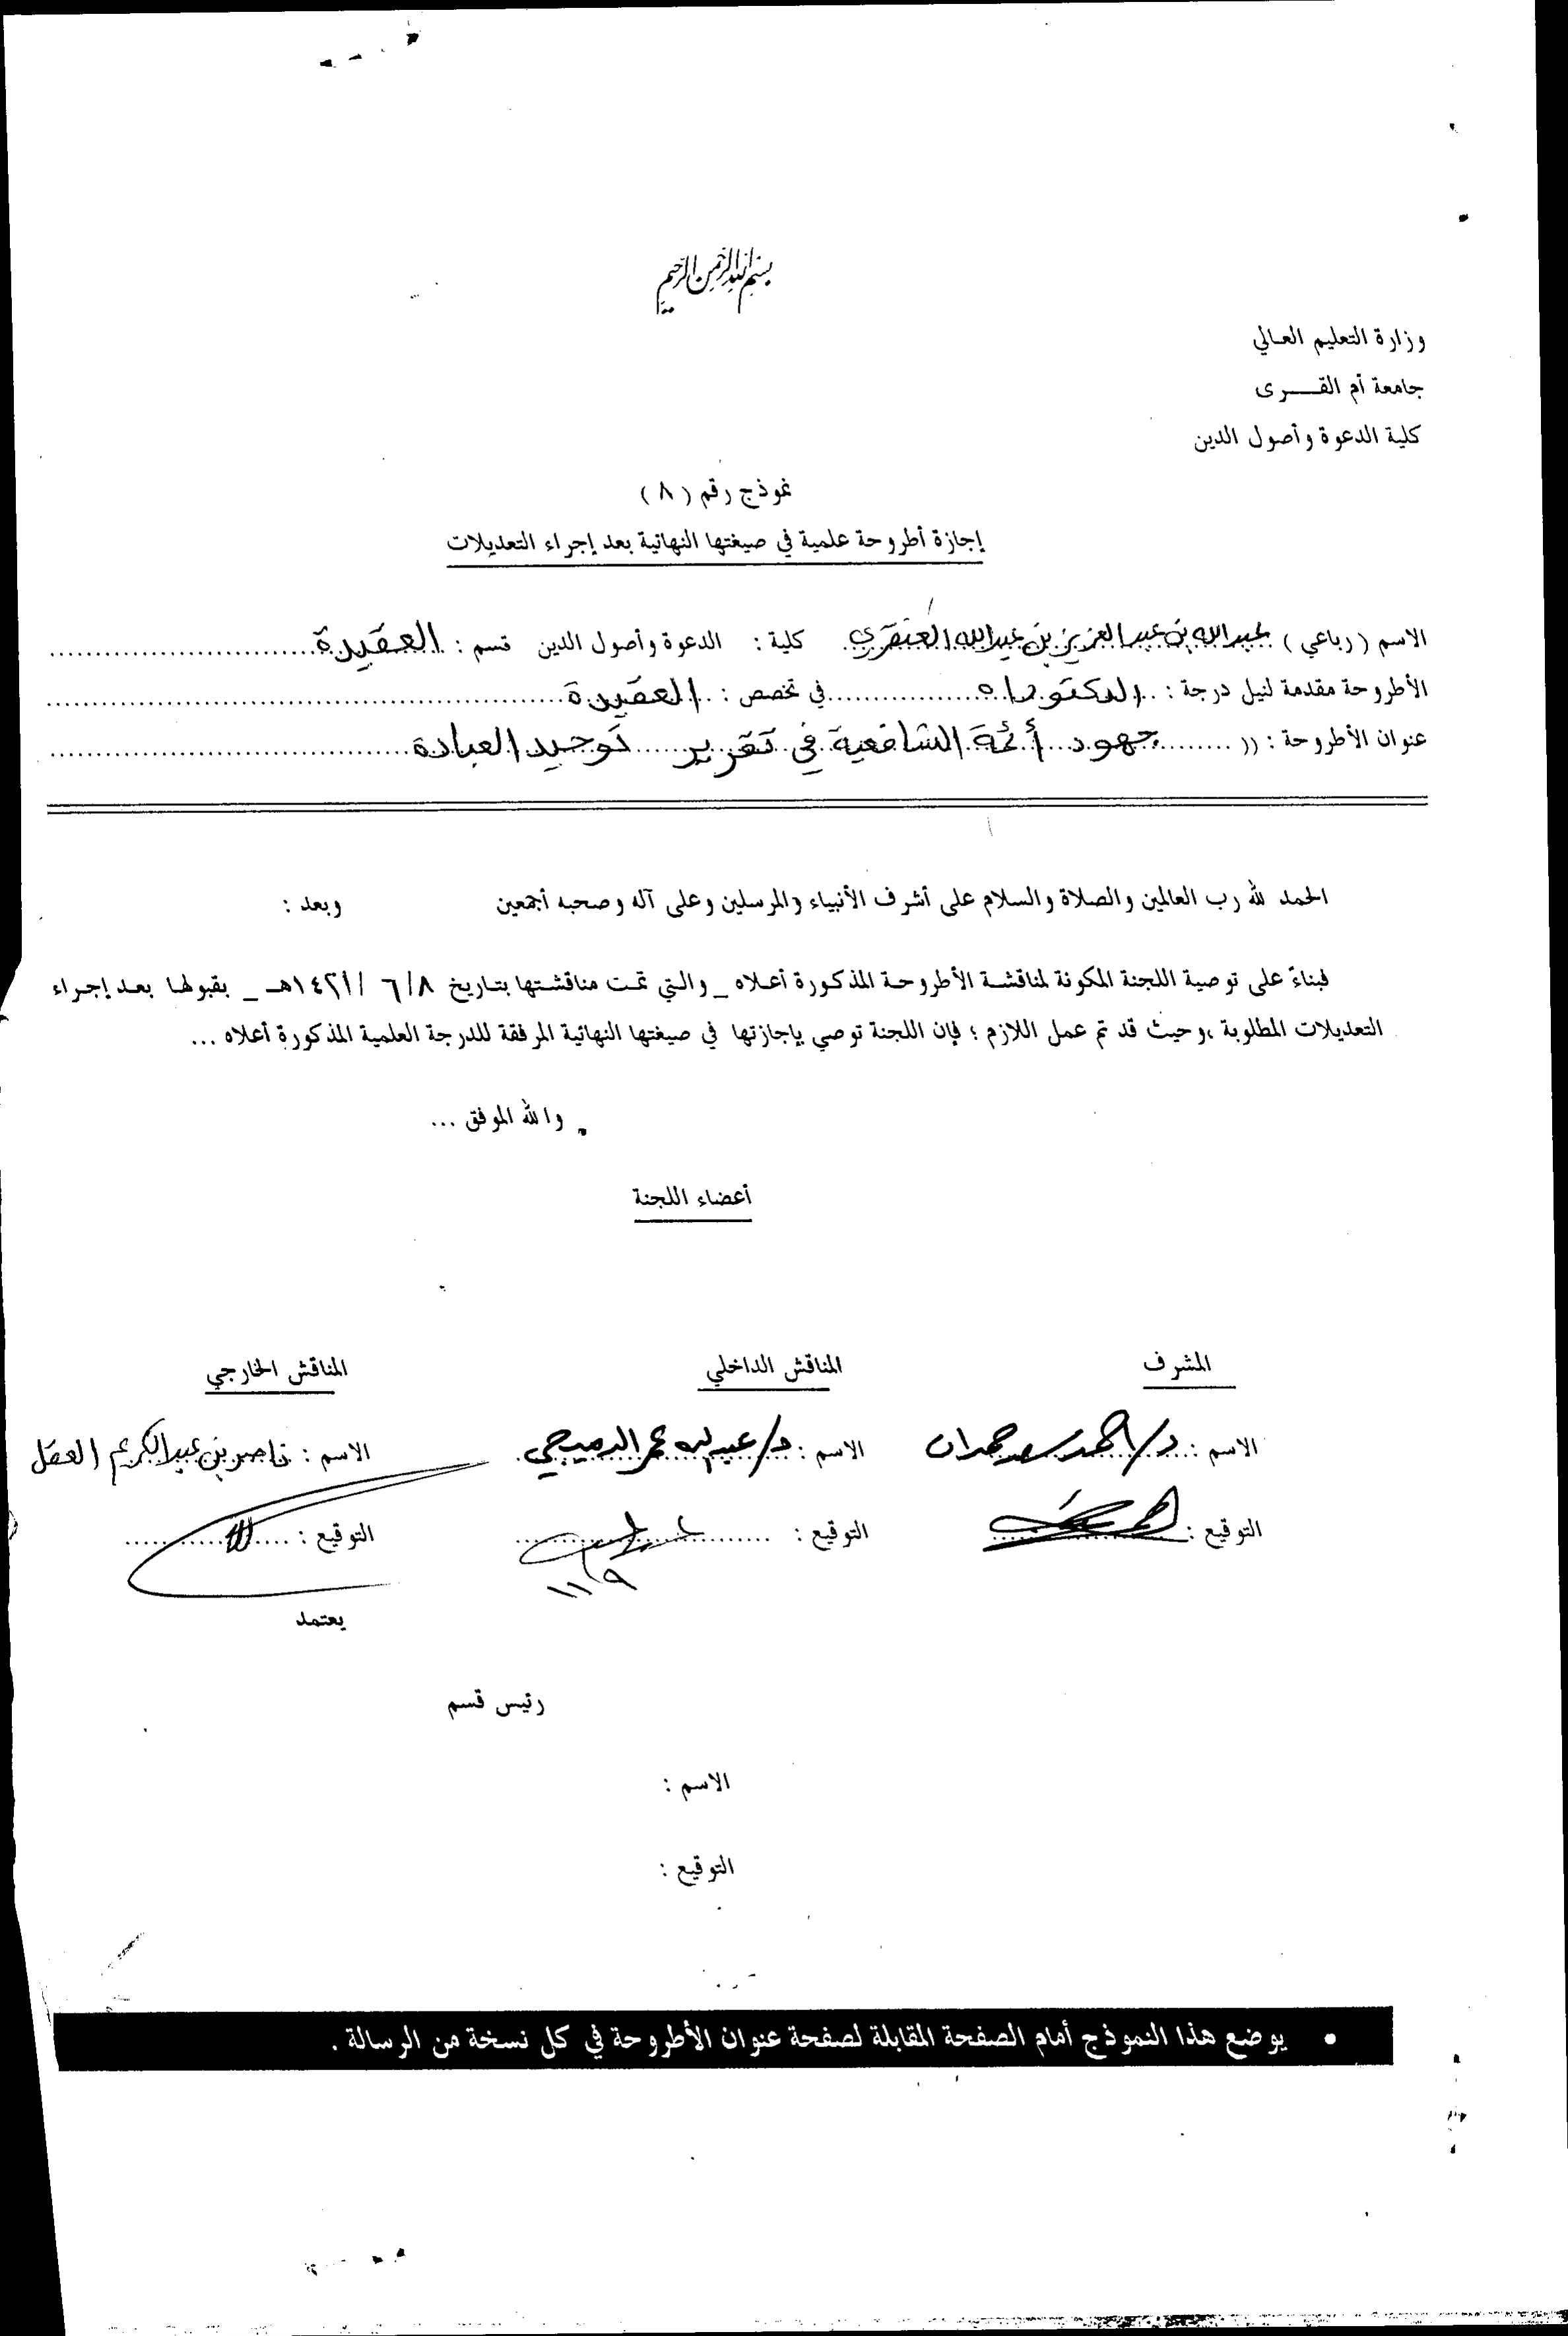 بسم الله الرحمن الرحيم
وزارة التعليم العالي
جامعة أم القــــرى
كلية الدعوة وأصول الدين
نموذج رقم ( ٨ )
إجازة أطروحة علمية في صيغتها النهائية بعد إجراء التعديلات
الاسم ( رباعي ) عبدالله بن عبدالعزيز بن عبدالله العنقري كلية : الدعوة وأصول الدين قسم : العقيدة
الأطروحة مقدمة لنيل درجة : الدكتوراه في تخصص : العقيدة
عنوان الأطروحة : (( جهود أئمة الشافعية في تقرير توحيد العبادة
الحمد لله رب العالمين والصلاة والسلام على أشرف الأنبياء والمرسلين وعلى آله وصحبه أجمعين وبعد :
فبناءً على توصية اللجنة المكونة لمناقشة الأطروحة المذكورة أعلاه _ والتي تمت مناقشتها بتاريخ ٨/ ٦ /١٤٢١هـ _ بقبولها بعد إجراء
التعديلات المطلوبة ، وحيث قد تم عمل اللازم ؛ فإن اللجنة توصي بإجازتها في صيغتها النهائية المرفقة للدرجة العلمية المذكورة أعلاه ...
والله الموفق ...
أعضاء اللجنة
المشرف المناقش الداخلي المناقش الخارجي
الاسم : د/ أحمد سعد حمدان الاسم : د/ عبدالله عمر الدميجي الاسم : ناصر بن عبدالكريم العقل
التوقيع : التوقيع : التوقيع :
يعتمد
رئيس قسم
الاسم :
التوقيع :
• يوضع هذا النموذج أمام الصفحة المقابلة لصفحة عنوان الأطروحة في كل نسخة من الرسالة .